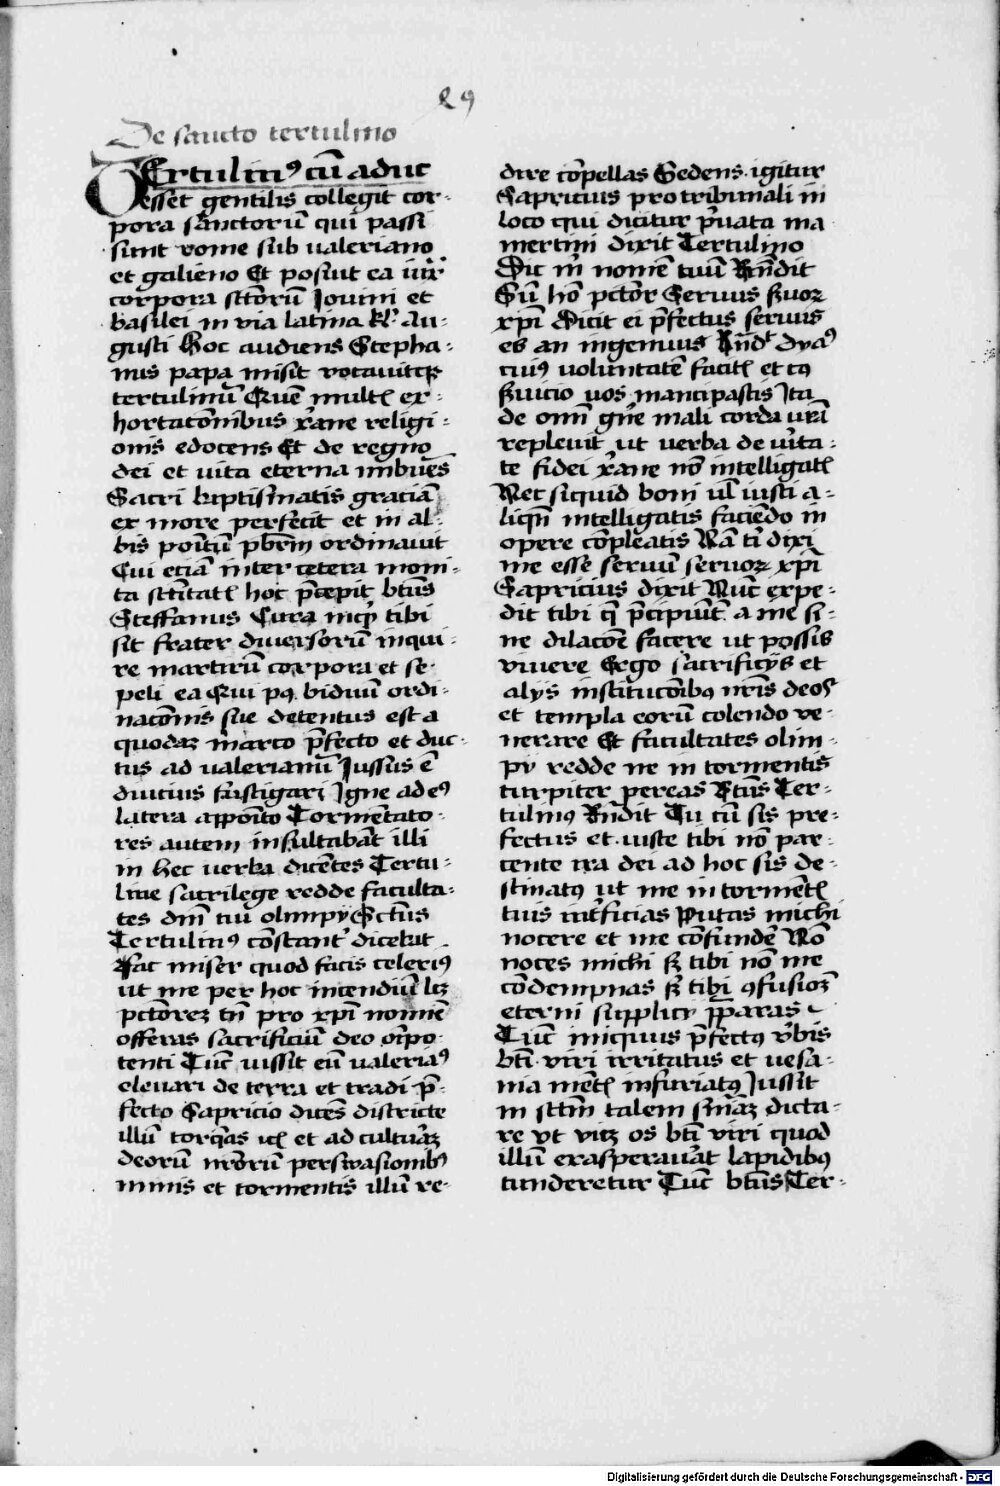 29
De sancto tertulino
TErtulin⁹ cū aduc
esset gentilis collegit cor-
pora sanctorū qui passi
sunt rome sub valeriano
et galieno Et posuit ea iux̄
corpora sctōrū Iouini et
basilei in via latina kl' Au-
gusti Hoc audiens Stepha-
nus papa misit vocauitqꝫ
tertulinū Quē mult̄ ex-
hortacōnibus xr̄ane religi-
onis edocens Et de regno
dei et vita eterna imbuēs
Sacri baptismatis graciā
ex more perfecit et in al-
bis poītū pbr̄m ordinauit
Cui eciā inter cetera moni-
ta sctītat̄ hoc p̄cepit btūs
Steffanus Cura inqͥ tibi
sit frater diuersorū inqui-
re martirū corpora et se-
peli ea Qui pꝰ biduū ordi-
nacōnis sue detentus est a
quodaꝫ marco p̄fecto et duc-
tus ad valerianū Iussus ē
diucius fustigari Igne ad eꝰ
latera appōito Tormētato-
res autem insultabāt illi
in hec verba dicētes Tertu-
line sacrilege redde faculta-
tes dn̄i tui olimpy Sctūs
Tertulin⁹ cōstant' dicebat
Fac miser quod facis celeri⁹
ut me per hoc incendiū lꝫ
pctōreꝫ tn̄ pro xpī nomīe
offeras sacrificiū deo oīpo-
tenti Tūc iussit eū valeria⁹
eleuari de terra et tradi p̄-
fecto Capricio dicēs districte
illū torqͣas et ad culturāꝫ
deorū nr̄orū perswasionib⁹
minis et tormentis illū re-
dire cōpellas Sedens igitur
Capricius pro tribunali in
loco qui dicitur p̄uata ma
mertini dixit Tertulino
Dic m̄ nomē tuū Rn̄dit
Sū hō pctōr Seruus ẜuoꝝ
xpī Dicit ei p̄fectus seruus
es an ingenuus Rn̄dꝭ dya⁹
cuiꝰ voluntatē facit̄ et cꝰ
ẜuicio vos mancipastis Ita
de omī gn̄e mali corda vr̄a
repleuit ut verba de vīta-
te fidei xr̄ane nō intelligat̄
Nec siquid boni ul̄ iusti a-
liqn̄ intelligatis faciēdo in
opere cōpleatis Nā tī dixi
me esse seruū seruoꝝ xpī
Capricius dixit Nūc expe-
dit tibi qͥ p̄cipiūt a me si-
ne dilacōe facere ut possis
viuere Ergo sacrificijs et
alys institucōibꝰ nr̄is deos
et templa eorū colendo ve-
nerare Et facultates olim-
py redde ne in tormentis
turpiter pereas Btūs Ter-
tulin⁹ Rn̄dit Tu cū sis pre-
fectus et iuste tibi nō par-
cente ira dei ad hoc sis de-
stinatꝰ ut me in tormēt̄
tuis int̄ficias Putas michi
nocere et me cōfundē Nō
noces michi ẜꝫ tibi nō me
cōdempnas ẜꝫ tibi ꝯfusioꝫ
eterni supplicy p̄paras
Tūc iniquus p̄fectꝰ v̄bis
btī viri irritatus et vesa-
nia mēt̄ infuriatꝰ Iussit
in sctm̄ talem sn̄iāꝫ dicta-
re vt os btī viri quod
illū exasperauāt lapidibꝰ
tunderetur Tūc btūs Ter-
Digitalisierung gefördert durch die Deutsche Forschungsgemeinschaft - DFG